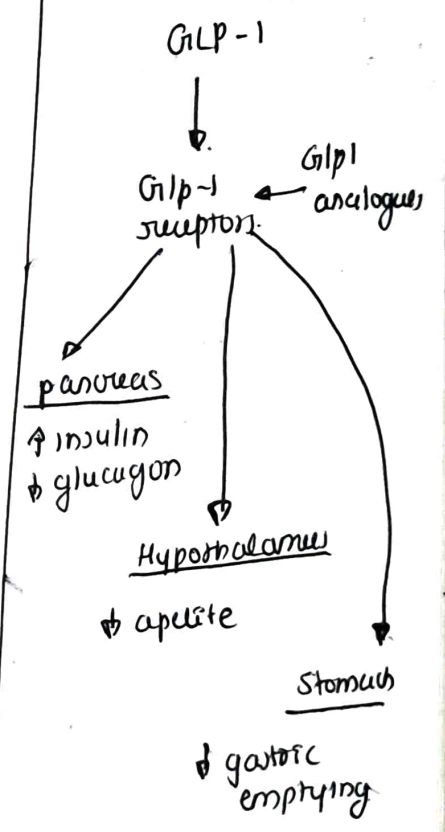 GLP-1
Glp-1
receptors.
Glp1
analogues
pancreas
↑ insulin
↓ glucagon
Hypothalamus
↓ apetite
Stomach
↓ gastric
emptying